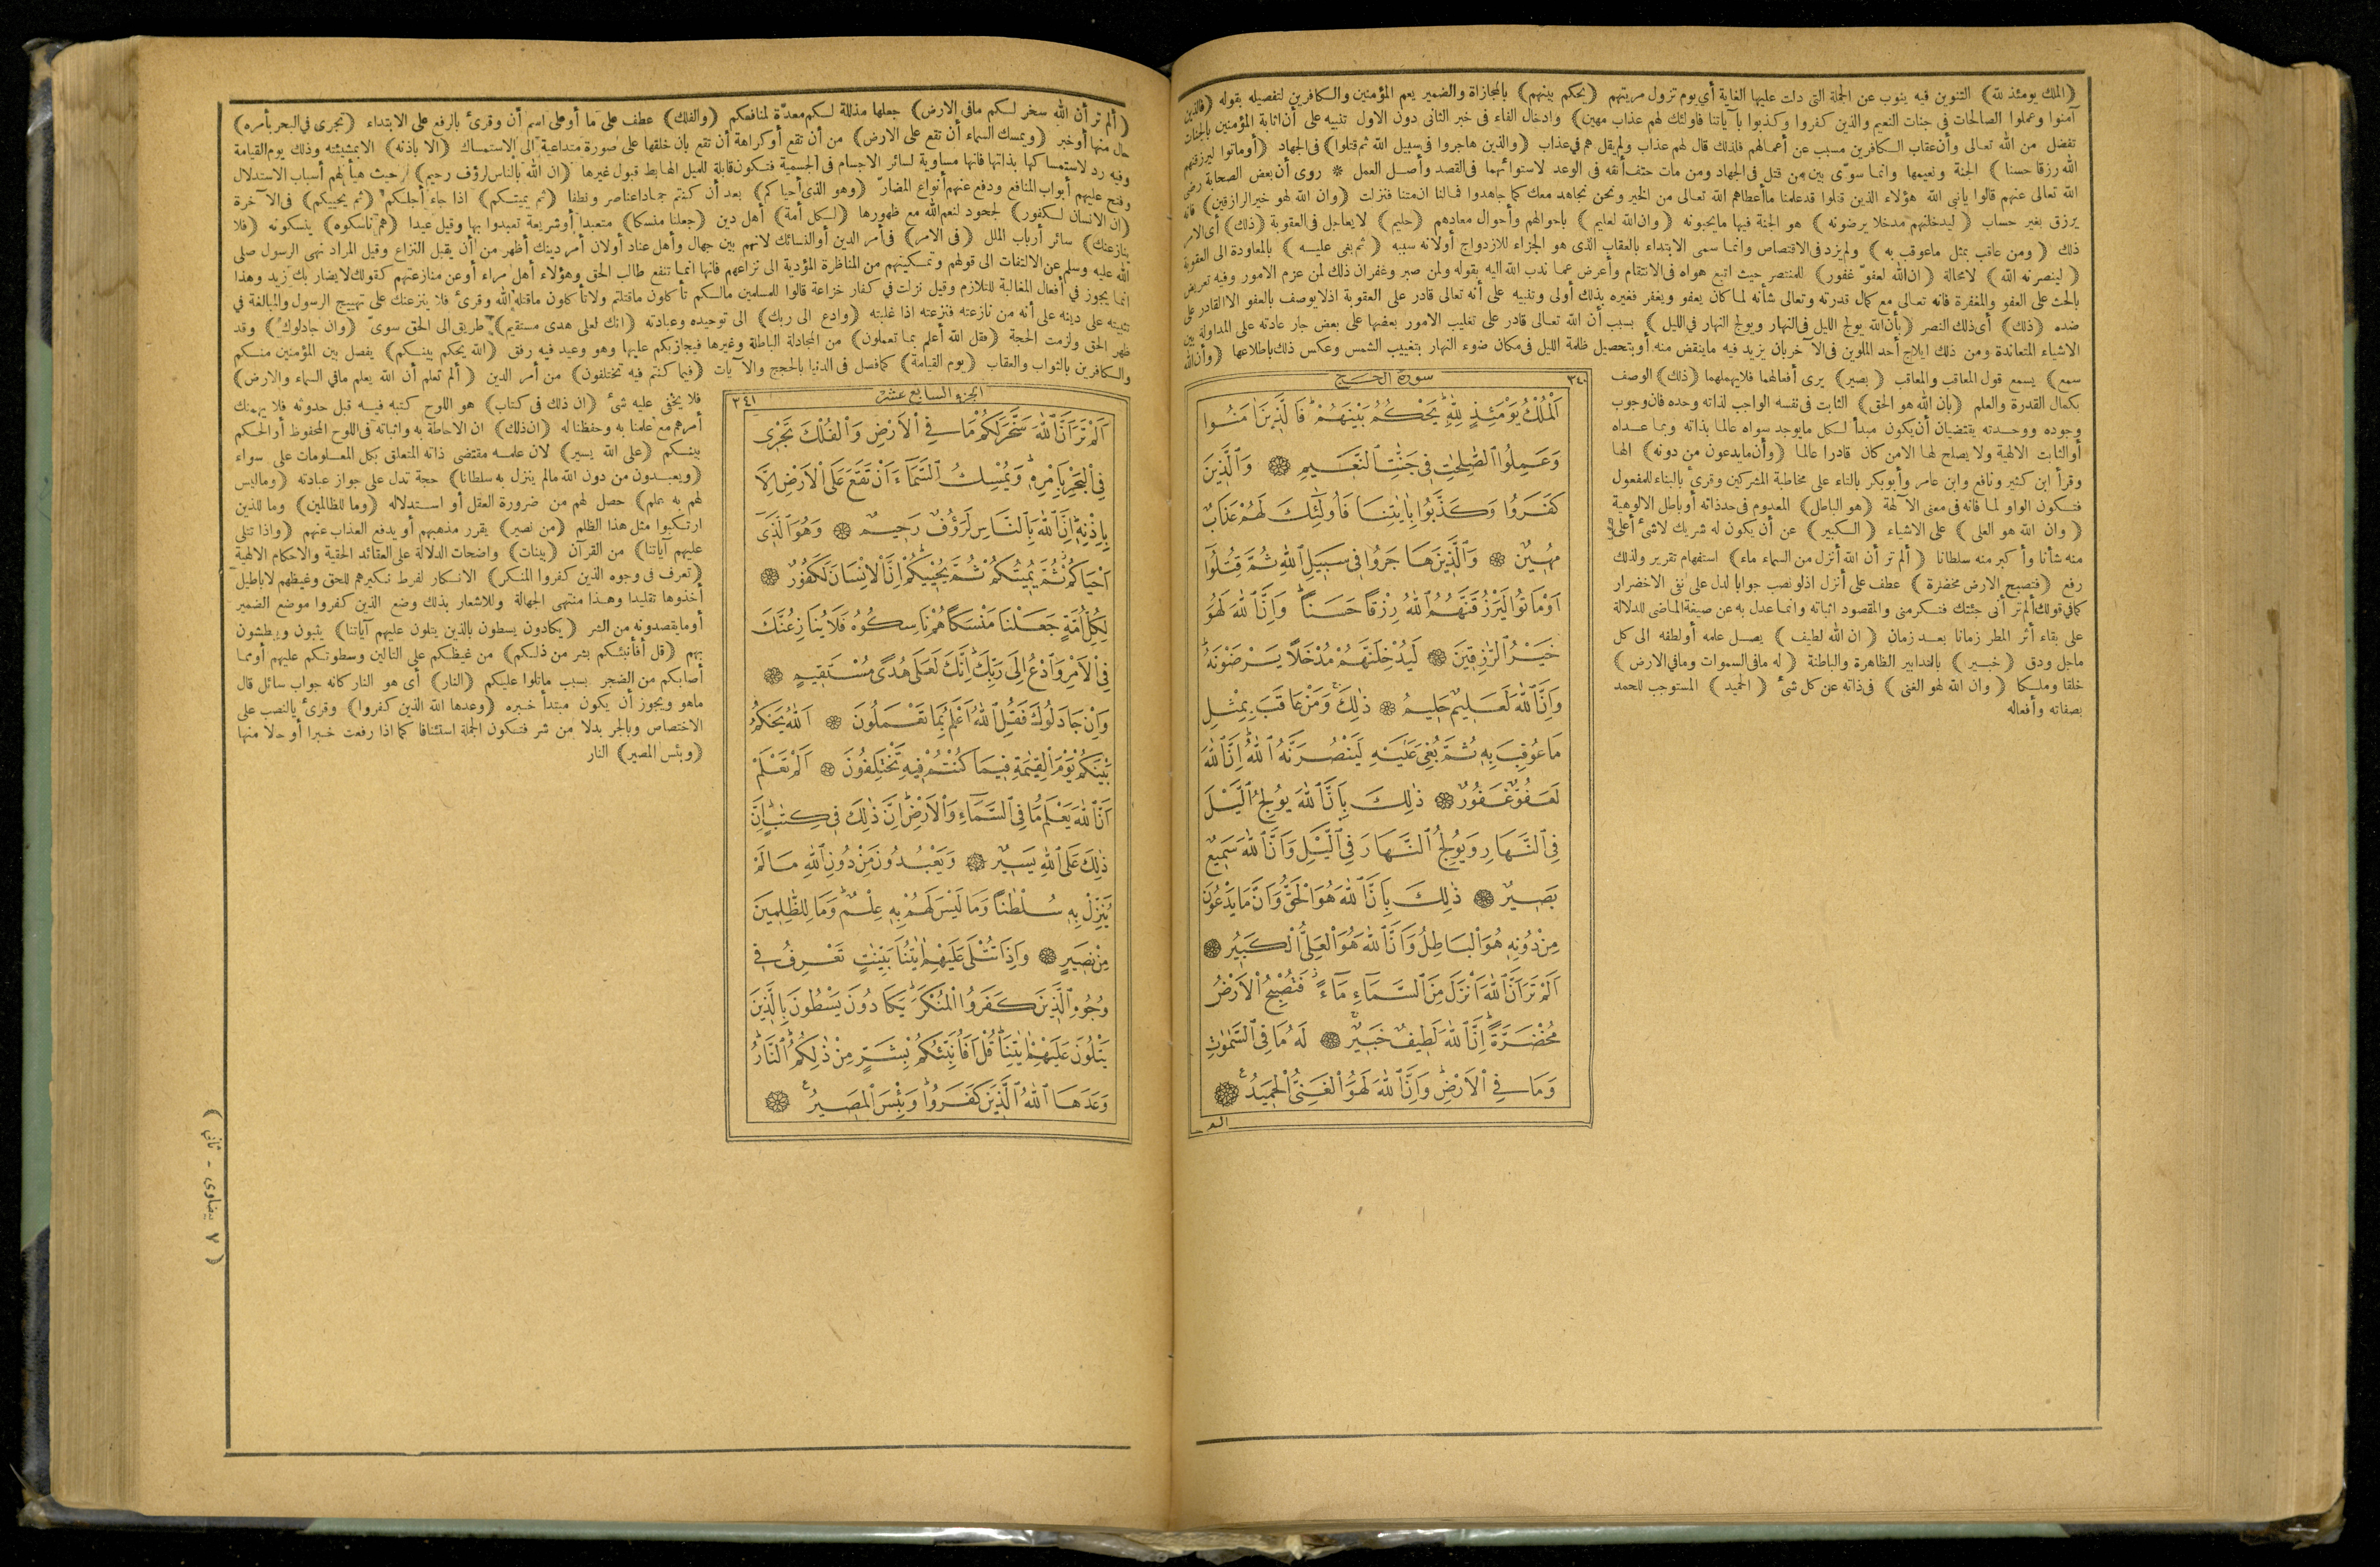 (الملك يومئذ لله) التنوين فيه ينوب عن الجملة التى دلت عليها الغاية أي يوم تزول مريتهم (يحكم بينهم) بالمجازاة والضمير يعم المؤمنين والكافرين لتفصيله بقوله (فالذين
آمنوا وعملوا الصالحات فى جنات النعيم والذين كفروا وكذبوا بآياتنا فاولئك لهم عذاب مهين) وادخال الفاء فى خبر الثانى دون الاول تنبيه على أن اثابة المؤمنين بالجنات
تفضل من الله تعالى وأن عقاب الكافرين مسبب عن أعمالهم فلذلك قال لهم عذاب ولم يقل هم في عذاب (والذين هاجروا فى سبيل الله ثم قتلوا) فى الجهاد (أوماتوا ليرزقنهم
الله رزقا حسنا) الجنة ونعيمها وانما سوّى بين من قتل فى الجهاد ومن مات حتف أنفه فى الوعد لاستوائهما فى القصد وأصل العمل * روى أن بعض الصحابة رضى
الله تعالى عنهم قالوا يانبى الله هؤلاء الذين قتلوا قد علمنا ماأعطاهم الله تعالى من الخير ونحن نجاهد معك كما جاهدوا فمالنا ان متنا فنزلت (وان الله لهو خير الرازقين) فانه
يرزق بغير حساب (ليدخلنهم مدخلا يرضونه) هو الجنة فيها مايحبونه (وان الله لعليم) باحوالهم وأحوال معادهم (حليم) لايعاجل فى العقوبة (ذلك) أى الامر
ذلك (ومن عاقب بمثل ماعوقب به) ولم يزد فى الاقتصاص وانما سمى الابتداء بالعقاب الذى هو الجزاء للازدواج أولانه سببه (ثم بغى عليه) بالمعاودة الى العقوبة
(لينصرنه الله) لامحالة (ان الله لعفوّ غفور) للمنتصر حيث اتبع هواه فى الانتقام وأعرض عما ندب الله اليه بقوله ولمن صبر وغفران ذلك لمن عزم الامور وفيه تعريض
بالحث على العفو والمغفرة فانه تعالى مع كمال قدرته وتعالى شأنه لما كان يعفو ويغفر فغيره بذلك أولى وتنبيه على أنه تعالى قادر على العقوبة اذلا يوصف بالعفو الا القادر على
ضده (ذلك) أى ذلك النصر (بأن الله يولج الليل فى النهار ويولج النهار فى الليل) بسبب أن الله تعالى قادر على تغليب الامور بعضها على بعض جار عادته على المداولة بين
الاشياء المتعاندة ومن ذلك ايلاج أحد الملوين فى الآخر بان يزيد فيه ماينقض منه أو بتحصيل ظلمة الليل فى مكان ضوء النهار بتغييب الشمس وعكس ذلك باطلاعها (وأن الله
سمع) يسمع قول المعاقب والمعاقب (بصير) يرى أفعالهما فلايهملهما (ذلك) الوصف
بكمال القدرة والعلم (بان الله هو الحق) الثابت فى نفسه الواجب لذاته وحده فان وجوب
وجوده ووحدته يقتضيان أن يكون مبدأ لكل مايوجد سواه عالما بذاته وبما عداه
أوالثابت الالهية ولا يصلح لها الامن كان قادرا عالما (وأن مايدعون من دونه) الها
وقرأ ابن كثير ونافع وابن عامر وأبوبكر بالتاء على مخاطبة المشركين وقرئ بالبناء للمفعول
فتكون الواو لما فانه فى معنى الآلهة (هو الباطل) المعدوم فى حدذاته أوباطل الالوهية
(وان الله هو العلى) على الاشياء (الكبير) عن أن يكون له شريك لاشئ أعلى
منه شأنا وأكبر منه سلطانا (ألم تر أن الله أنزل من السماء ماء) استفهام تقرير ولذلك
رفع (فتصبح الارض مخضرة) عطف على أنزل اذلو نصب جوابا لدل على نفى الاخضرار
كمافي قولك ألم تر أنى جئتك فتكرمنى والمقصود اثباته وانما عدل به عن صيغة الماضى للدلالة
على بقاء أثر المطر زمانا بعد زمان (ان الله لطيف) يصل علمه أولطفه الى كل
ماجل ودق (خبير) بالتدابير الظاهرة والباطنة (له مافى السموات ومافي الارض)
خلقا وملكا (وان الله لهو الغنى) فى ذاته عن كل شئ (الحميد) المستوجب للحمد
بصفاته وأفعاله
٣٤٠ سورة الحج
اَلْمُلْكُ يَوْمَئِذٍ لِلّٰهِ يَحْكُمُ بَيْنَهُمْ فَالَّذِينَ اٰمَنُوا
وَعَمِلُوا الصَّالِحَاتِ فِي جَنَّاتِ النَّعِيمِ ۞ وَالَّذِينَ
كَفَرُوا وَكَذَّبُوا بِاٰيَاتِنَا فَاُولٰئِكَ لَهُمْ عَذَابٌ
مُهِينٌ ۞ وَالَّذِينَ هَاجَرُوا فِي سَبِيلِ اللّٰهِ ثُمَّ قُتِلُوا
اَوْ مَاتُوا لَيَرْزُقَنَّهُمُ اللّٰهُ رِزْقًا حَسَنًا وَاِنَّ اللّٰهَ لَهُوَ
خَيْرُ الرَّازِقِينَ ۞ لَيُدْخِلَنَّهُمْ مُدْخَلًا يَرْضَوْنَهُ
وَاِنَّ اللّٰهَ لَعَلِيمٌ حَلِيمٌ ۞ ذٰلِكَ وَمَنْ عَاقَبَ بِمِثْلِ
مَا عُوقِبَ بِهِ ثُمَّ بُغِيَ عَلَيْهِ لَيَنْصُرَنَّهُ اللّٰهُ اِنَّ اللّٰهَ
لَعَفُوٌّ غَفُورٌ ۞ ذٰلِكَ بِاَنَّ اللّٰهَ يُولِجُ الَّيْلَ
فِي النَّهَارِ وَيُولِجُ النَّهَارَ فِي الَّيْلِ وَاَنَّ اللّٰهَ سَمِيعٌ
بَصِيرٌ ۞ ذٰلِكَ بِاَنَّ اللّٰهَ هُوَ الْحَقُّ وَاَنَّ مَا يَدْعُونَ
مِنْ دُونِهِ هُوَ الْبَاطِلُ وَاَنَّ اللّٰهَ هُوَ الْعَلِيُّ الْكَبِيرُ ۞
اَلَمْ تَرَ اَنَّ اللّٰهَ اَنْزَلَ مِنَ السَّمَاءِ مَاءً فَتُصْبِحُ الْاَرْضُ
مُخْضَرَّةً اِنَّ اللّٰهَ لَطِيفٌ خَبِيرٌ ۞ لَهُ مَا فِي السَّمٰوَاتِ
وَمَا فِي الْاَرْضِ وَاِنَّ اللّٰهَ لَهُوَ الْغَنِيُّ الْحَمِيدُ ۞
الم
(ألم تر أن الله سخر لكم مافى الارض) جعلها مذللة لكم معدّة لمنافعكم (والفلك) عطف على ما أوعلى اسم أن وقرئ بالرفع على الابتداء (تجرى فى البحر بأمره)
حال منها أوخبر (ويمسك السماء أن تقع على الارض) من أن تقع أوكراهة أن تقع بان خلقها على صورة متداعية الى الاستمساك (الا باذنه) الابمشيئته وذلك يوم القيامة
وفيه رد لاستمساكها بذاتها فانها مساوية لسائر الاجسام فى الجسمية فتكون قابلة للميل الهابط قبول غيرها (ان الله بالناس لرؤف رحيم) حيث هيأ لهم أسباب الاستدلال
وفتح عليهم أبواب المنافع ودفع عنهم أنواع المضارّ (وهو الذى أحياكم) بعد أن كنتم جمادا عناصر ونطفا (ثم يميتكم) اذا جاء أجلكم (ثم يحييكم) فى الآخرة
(ان الانسان لكفور) لجحود لنعم الله مع ظهورها (لكل أمة) أهل دين (جعلنا منسكا) متعبدا أوشريعة تعبدوا بها وقيل عيدا (هم ناسكوه) ينسكونه (فلا
ينازعنك) سائر أرباب الملل (فى الامر) فى أمر الدين أوالنسائك لانهم بين جهال وأهل عناد أولان أمر دينك أظهر من أن يقبل النزاع وقيل المراد نهى الرسول صلى
الله عليه وسلم عن الالتفات الى قولهم وتمكينهم من المناظرة المؤدية الى نزاعهم فانها انما تنفع طالب الحق وهؤلاء أهل مراء أوعن منازعتهم كقولك لايضاربك زيد وهذا
انما يجوز في أفعال المغالبة للتلازم وقيل نزلت في كفار خزاعة قالوا للمسلمين مالكم تأكلون ماقتلتم ولاتأكلون ماقتله الله وقرئ فلا ينزعنك على تهييج الرسول والمبالغة في
تثبيته على دينه على أنه من نازعته فنزعته اذا غلبته (وادع الى ربك) الى توحيده وعبادته (انك لعلى هدى مستقيم) طريق الى الحق سوىّ (وان جادلوك) وقد
ظهر الحق ولزمت الحجة (فقل الله أعلم بما تعملون) من المجادلة الباطلة وغيرها فيجازيكم عليها وهو وعيد فيه رفق (الله يحكم بينكم) يفصل بين المؤمنين منكم
والكافرين بالثواب والعقاب (يوم القيامة) كمافصل فى الدنيا بالحجج والآيات (فيما كنتم فيه تختلفون) من أمر الدين (ألم تعلم أن الله يعلم مافي السماء والارض)
فلا يخفى عليه شئ (ان ذلك فى كتاب) هو اللوح كتبه فيه قبل حدوثه فلا يهمنك
أمرهم مع علمنا به وحفظنا له (ان ذلك) ان الاحاطة به واثباته فى اللوح المحفوظ أوالحكم
بينكم (على الله يسير) لان علمه مقتضى ذاته المتعلق بكل المعلومات على سواء
(ويعبدون من دون الله مالم ينزل به سلطانا) حجة تدل على جواز عبادته (وماليس
لهم به علم) حصل لهم من ضرورة العقل أو استدلاله (وما للظالمين) وما للذين
ارتكبوا مثل هذا الظلم (من نصير) يقرر مذهبهم أو يدفع العذاب عنهم (واذا تتلى
عليهم آياتنا) من القرآن (بينات) واضحات الدلالة على العقائد الحقية والاحكام الالهية
(تعرف فى وجوه الذين كفروا المنكر) الانكار لفرط نكيرهم للحق وغيظهم لاباطيل
أخذوها تقليدا وهذا منتهى الجهالة وللاشعار بذلك وضع الذين كفروا موضع الضمير
أومايقصدونه من الشر (يكادون يسطون بالذين يتلون عليهم آياتنا) يثبون ويبطشون
بهم (قل أفأنبئكم بشر من ذلكم) من غيظكم على التالين وسطوتكم عليهم أومما
أصابكم من الضجر بسبب ماتلوا عليكم (النار) أى هو النار كانه جواب سائل قال
ماهو ويجوز أن يكون مبتدأ خبره (وعدها الله الذين كفروا) وقرئ بالنصب على
الاختصاص وبالجر بدلا من شر فتكون الجملة استئنافا كما اذا رفعت خبرا أو حالا منها
(وبئس المصير) النار
الجزء السابع عشر ٣٤١
اَلَمْ تَرَ اَنَّ اللّٰهَ سَخَّرَ لَكُمْ مَا فِي الْاَرْضِ وَالْفُلْكَ تَجْرِي
فِي الْبَحْرِ بِاَمْرِهِ وَيُمْسِكُ السَّمَاءَ اَنْ تَقَعَ عَلَى الْاَرْضِ اِلَّا
بِاِذْنِهِ اِنَّ اللّٰهَ بِالنَّاسِ لَرَؤُفٌ رَحِيمٌ ۞ وَهُوَ الَّذِي
اَحْيَاكُمْ ثُمَّ يُمِيتُكُمْ ثُمَّ يُحْيِيكُمْ اِنَّ الْاِنْسَانَ لَكَفُورٌ ۞
لِكُلِّ اُمَّةٍ جَعَلْنَا مَنْسَكًا هُمْ نَاسِكُوهُ فَلَا يُنَازِعُنَّكَ
فِي الْاَمْرِ وَادْعُ اِلٰى رَبِّكَ اِنَّكَ لَعَلٰى هُدًى مُسْتَقِيمٍ ۞
وَاِنْ جَادَلُوكَ فَقُلِ اللّٰهُ اَعْلَمُ بِمَا تَعْمَلُونَ ۞ اَللّٰهُ يَحْكُمُ
بَيْنَكُمْ يَوْمَ الْقِيٰمَةِ فِيمَا كُنْتُمْ فِيهِ تَخْتَلِفُونَ ۞ اَلَمْ تَعْلَمْ
اَنَّ اللّٰهَ يَعْلَمُ مَا فِي السَّمَاءِ وَالْاَرْضِ اِنَّ ذٰلِكَ فِي كِتَابٍ اِنَّ
ذٰلِكَ عَلَى اللّٰهِ يَسِيرٌ ۞ وَيَعْبُدُونَ مِنْ دُونِ اللّٰهِ مَا لَمْ
يُنَزِّلْ بِهِ سُلْطَانًا وَمَا لَيْسَ لَهُمْ بِهِ عِلْمٌ وَمَا لِلظَّالِمِينَ
مِنْ نَصِيرٍ ۞ وَاِذَا تُتْلٰى عَلَيْهِمْ اٰيَاتُنَا بَيِّنَاتٍ تَعْرِفُ فِي
وُجُوهِ الَّذِينَ كَفَرُوا الْمُنْكَرَ يَكَادُونَ يَسْطُونَ بِالَّذِينَ
يَتْلُونَ عَلَيْهِمْ اٰيَاتِنَا قُلْ اَفَاُنَبِّئُكُمْ بِشَرٍّ مِنْ ذٰلِكُمُ النَّارُ
وَعَدَهَا اللّٰهُ الَّذِينَ كَفَرُوا وَبِئْسَ الْمَصِيرُ ۞
(٧ بيضاوى - ثانى)